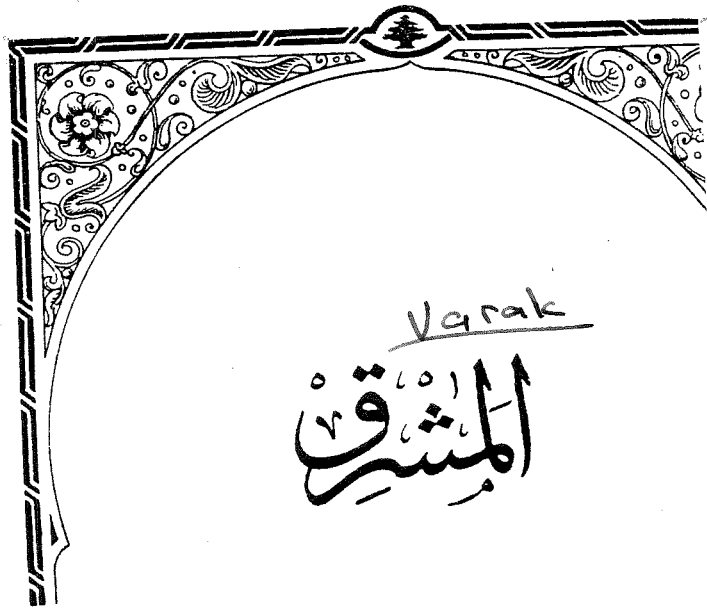 Varak
المَشرِق